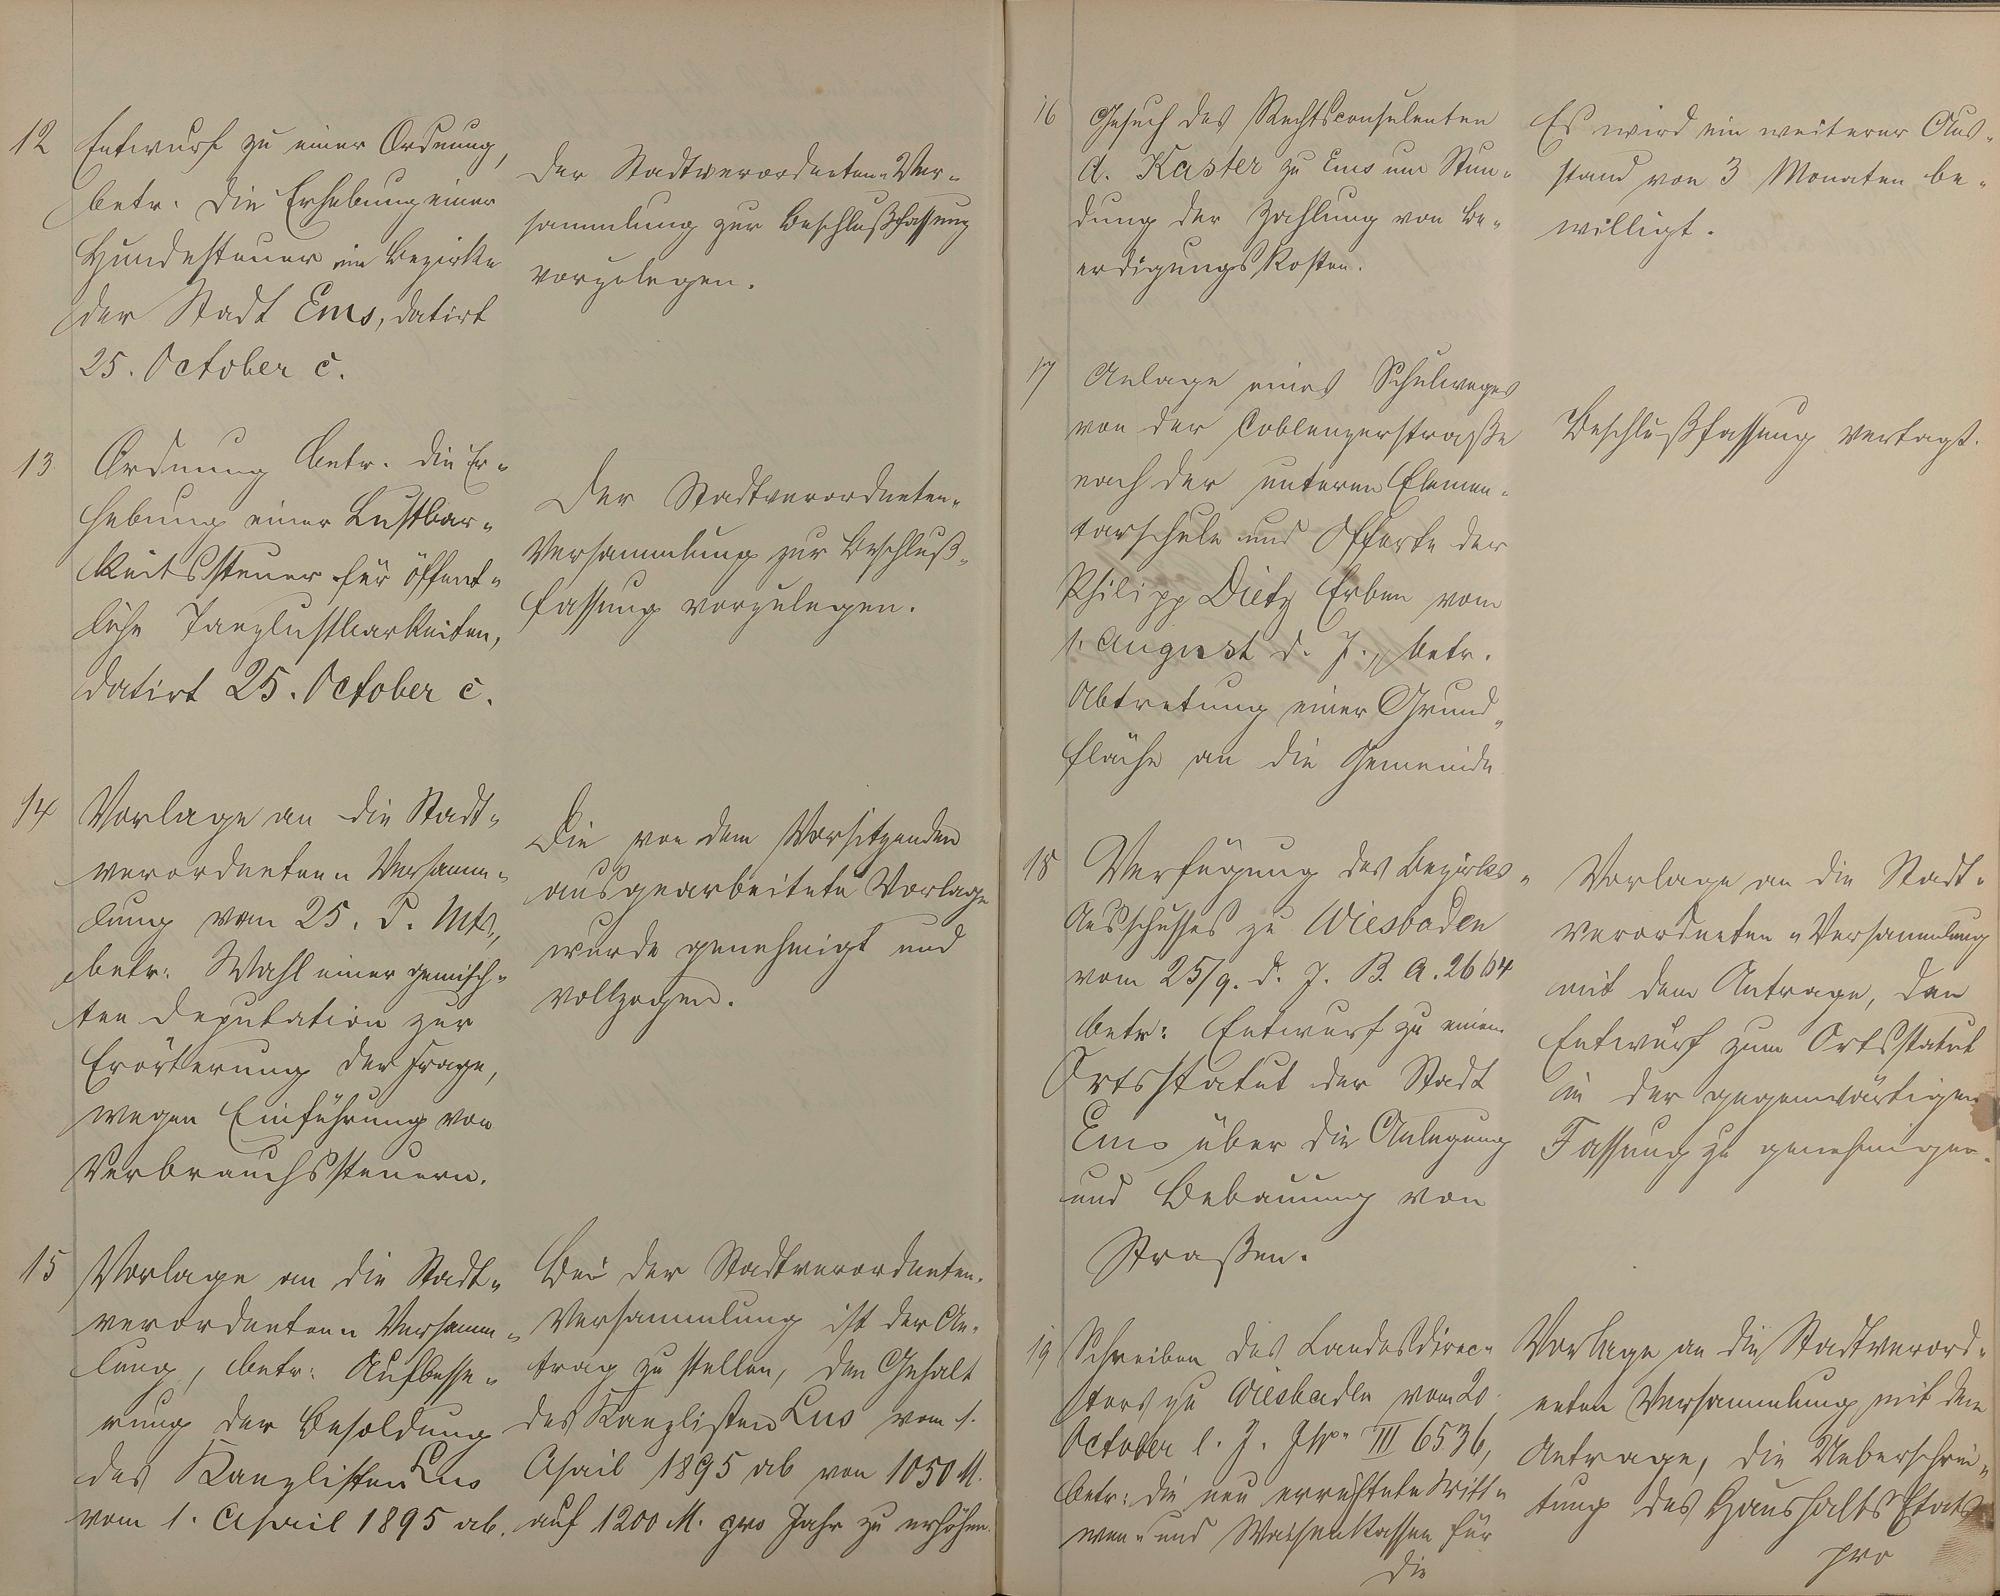 12
Entwurf zu einer Ordnung,
betr. die Erhebung einer
Hundesteuer im Bezirke
der Stadt Ems, datirt
25. October c.
Der Stadtverordneten-Ver-
sammlung zur Beschlußfassung
vorzulegen.
13
Ordnung betr. die Er-
hebung einer Lustbar-
keitssteuer für öffent-
liche Tanzlustbarkeiten,
datirt 25. October c.
Der Stadtverordneten-
Versammlung zur Beschluß-
fassung vorzulegen.
14
Vorlage an die Stadt-
verordneten-Versamm-
lung vom 25. d. Mts.,
betr. Wahl einer gemisch-
ten Deputation zur
Erörterung der Frage,
wegen Einführung von
Verbrauchssteuern.
Die von dem Vorsitzenden
ausgearbeitete Vorlage
wurde genehmigt und
vollzogen.
15
Vorlage an die Stadt-
verordneten-Versamm-
lung, betr: Aufbesse-
rung der Besoldung
des Kanzlisten Lus
vom 1. April 1895 ab.
Bei der Stadtverordneten-
Versammlung ist der An-
trag zu stellen, den Gehalt
des Kanzlisten Lus vom 1.
April 1895 ab von 1050 M.
auf 1200 M. pro Jahr zu erhöhen.
16
Gesuch des Rechtsconsulenten
A. Kaster zu Ems um Stun-
dung der Zahlung von Be-
erdigungskosten.
Es wird ein weiterer Aus-
stand von 3 Monaten be-
willigt.
17
Anlage eines Schulweges
von der Coblenzerstraße
nach der unteren Elemen-
tarschule und Offerte der
Philipp Dietz Erben vom
1. August d. J., betr.
Abtretung einer Grund-
fläche an die Gemeinde
Beschlußfassung vertagt.
18
Verfügung des Bezirks-
Ausschusses zu Wiesbaden
vom 25/9. d. J. B. A. 2664
betr: Entwurf zu einem
Ortsstatut der Stadt
Ems über die Anlegung
und Bebauung von
Straßen.
Vorlage an die Stadt-
verordneten-Versammlung
mit dem Antrage, den
Entwurf zum Ortsstatut
in der gegenwärtigen
Fassung zu genehmigen.
19
Schreiben des Landesdirec-
tors zu Wiesbaden vom 20.
October l. J. III 6536,
betr: die neu errichtete Witt-
wen- und Waisenkassen für
die
Vorlage an die Stadtverord-
neten Versammlung mit dem
Antrage, die Ueberschrei-
tung des Haushalts Etats
pro